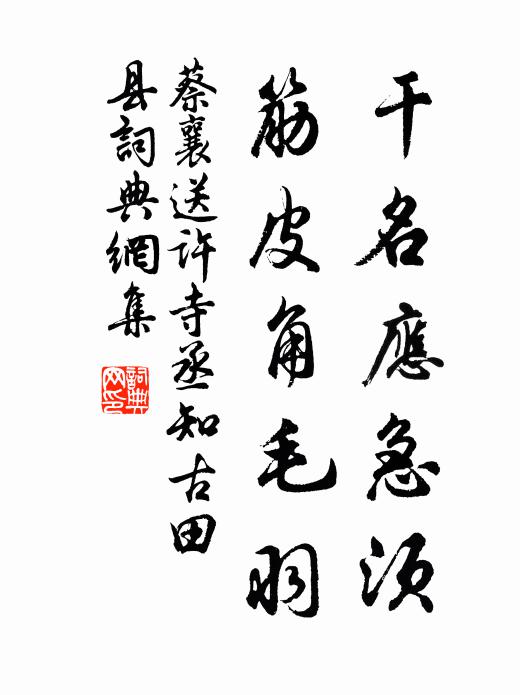 干名應急須
筋皮角毛羽
蔡襄送許寺丞知古田
县詞典網集
詞典网印